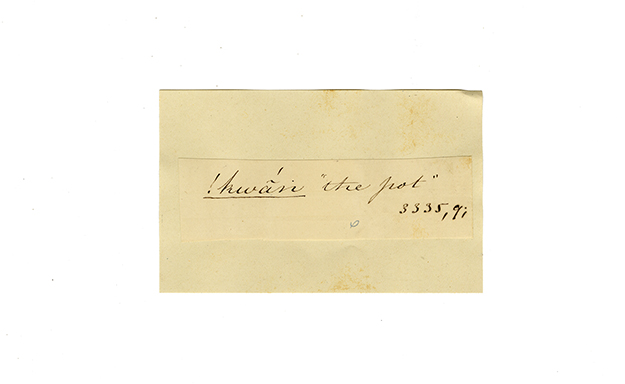 !kwā́ri "the pot"
3335, 9;